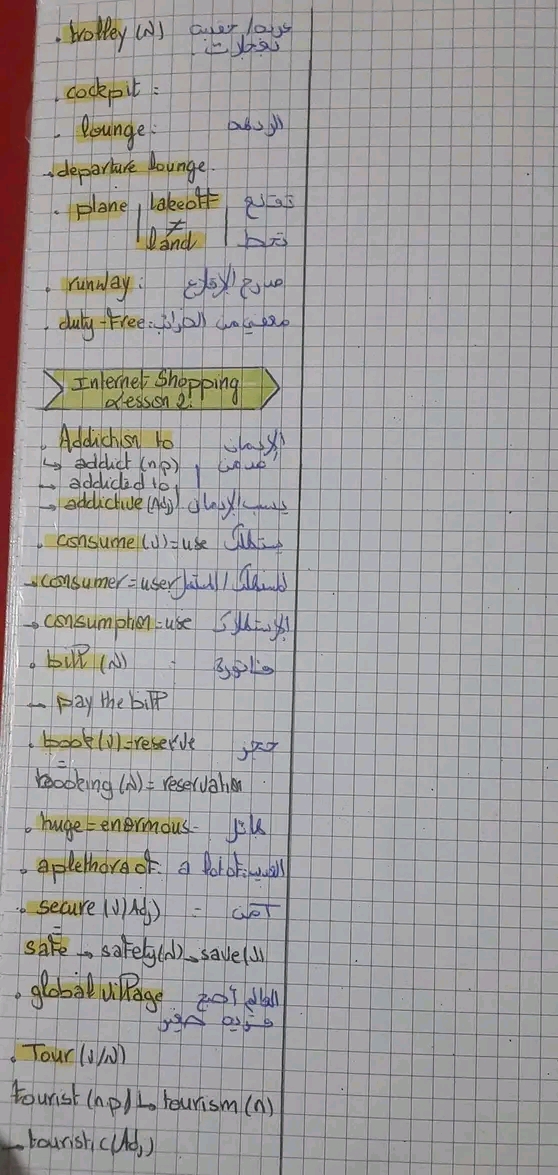 . trolley (N) عربة/حقيبة
بعجلات
. cockpit :
. lounge: الردهة
→ departure lounge.
. plane | takeoff | تقلع
≠
| land | تحط
. runway : مدرج الإقلاع
. duty-Free: معفى من الضرائب
Internet Shopping
Lesson 2:
. Addiction to الإدمان
↳ addict (n.p) مدمن
→ addicted to
→ addictive (Adj) يسبب الإدمان
. consume (V) = use يستهلك
→ consumer = user المستهلك / المستعمل
→ consumption = use الإستهلاك
. bill (N) : فاتورة
→ pay the bill
. book (V) = reserve حجز
=
booking (N) = reservation
. huge = enormous - هائل
. a plethora of: a lot of: العديد
. secure (V/Adj) = آمن
=
safe → safety (N) → save (V)
. global village العالم أصبح
قرية صغير
. Tour (V/N)
tourist (n.p) ↳ tourism (n)
→ touristic (Adj)